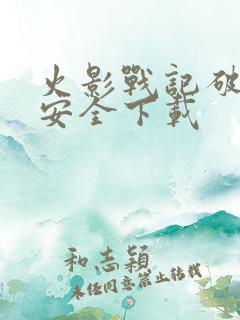 火影戰記破
安全下載
和志穎
未经同意禁止转载